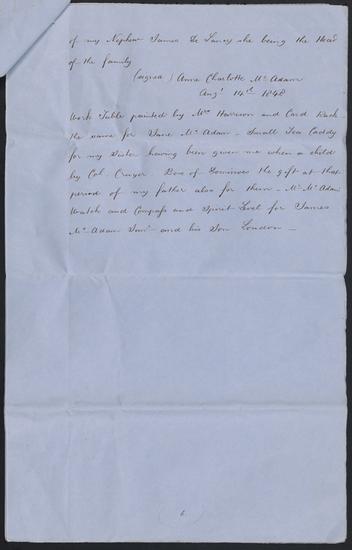 of my Nephew James De Lancey she being the Head
of the family
(signed) Anne Charlotte Mc Adam
Augt 14th 1848
Work Table painted by Mrs Harrison and Card Rack
the same for Jane Mc Adam – Small Tea Caddy
for my Sister having been given me when a child
by Col. Cruger Box of Dominoes the gift at that
period of my father also for them – Mr Mc Adam
Watch and Compass and Spirit Level for James
Mc Adam Senr and his Son London –
6